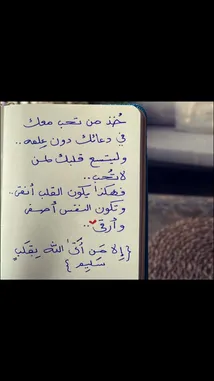 خُذ من تحب معك
في دعائك دون علمه..
وليتسع قلبك لمن
لا تُحب..
فهكذا يكون القلب أنقى..
وتكون النفس أصفى
وأرقى..
{إلا مَن أتىٰ الله بِقَلبٍ
سَليم}